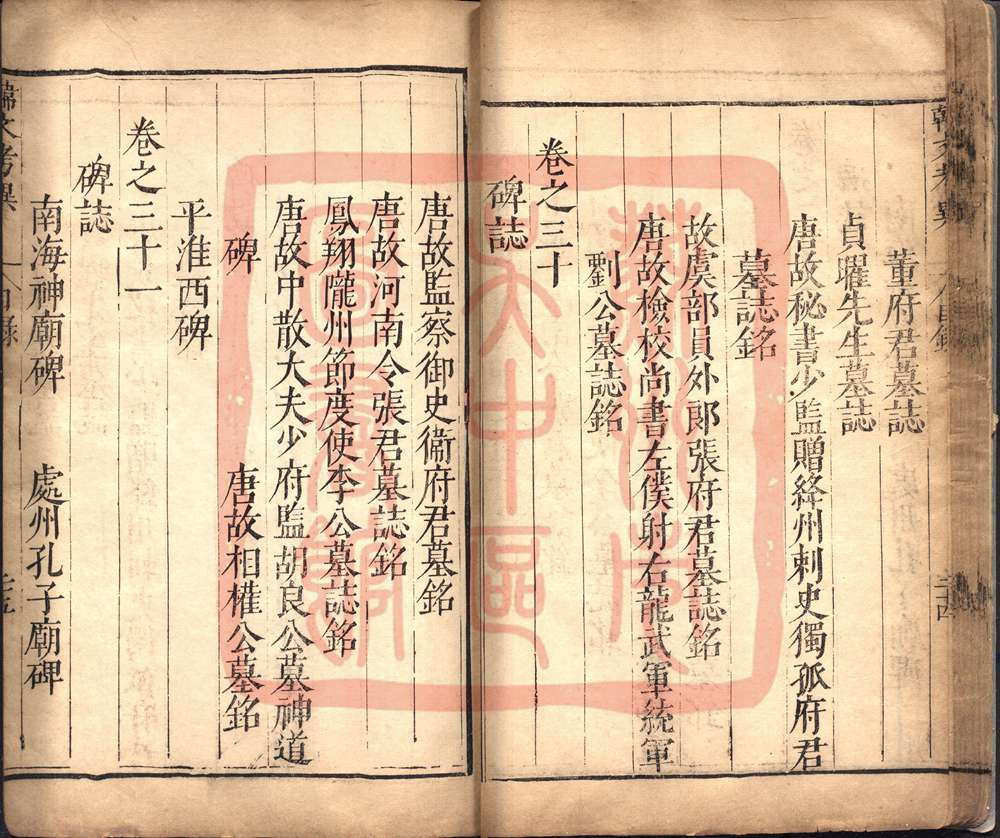 董府君墓誌
貞曜先生墓誌
唐故秘書少監贈絳州刺史獨孤府君
墓誌銘
故虞部員外郎張府君墓誌銘
唐故檢校尚書左僕射右龍武軍統軍
劉公墓誌銘
卷之三十
碑誌
唐故監察御史衛府君墓銘
唐故河南令張君墓誌銘
鳳翔隴州節度使李公墓誌銘
唐故中散大夫少府監胡良公墓神道
碑 唐故相權公墓銘
平淮西碑
卷之三十一
碑誌
南海神廟碑 處州孔子廟碑
韓文考異